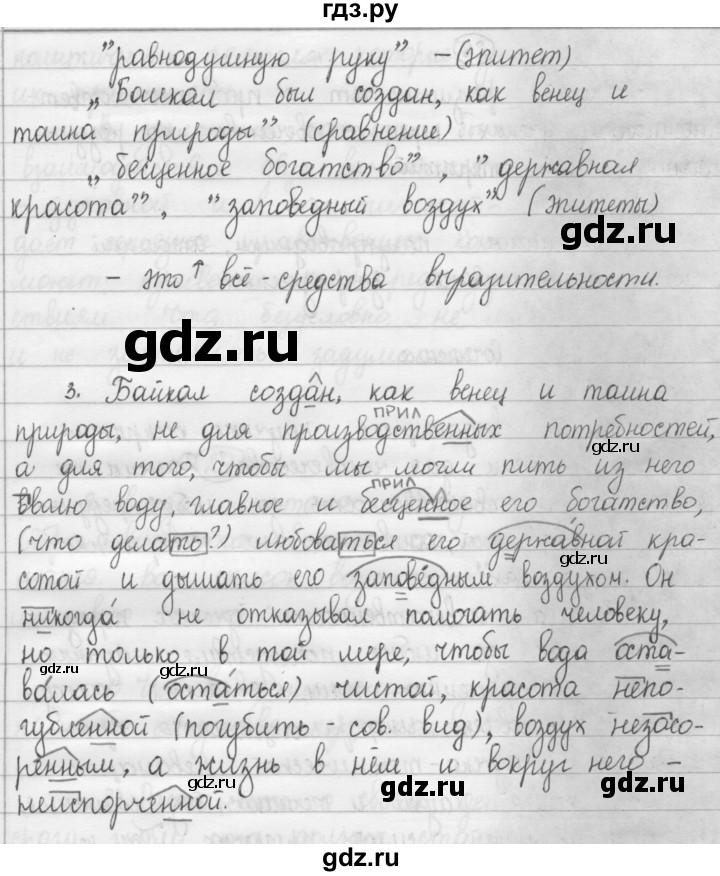 гдз.ру
"равнодушную руку" – (эпитет)
„Байкал был создан, как венец и
тайна природы" (сравнение)
„бесценное богатство", "державная
красота", "заповедный воздух" (эпитеты)
gdz.ru
– это ↑ всё средства выразительности.
gdz.ru gdz.ru
3. Байкал создан, как венец и тайна
прил
природы, не для производственных потребностей,
а для того, чтобы мы могли пить из него
прил
вволю воду, главное и бесценное его богатство,
gdz.ru
(что делать?) любоваться его державной кра-
gdz.ru
сотой и дышать его заповедным воздухом. Он
никогда не отказывал помогать человеку,
но только в той мере, чтобы вода оста-
gdz.ru gdz.ru
валась (остаться) чистой, красота непо-
губленной (погубить – сов. вид), воздух незасо-
ренным, а жизнь в нём и вокруг него –
неиспорченной.
gdz.ru
gdz.ru
gdz.ru